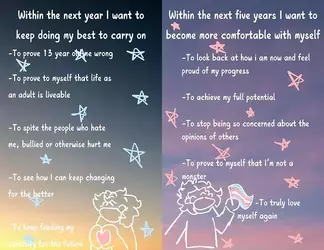 Within the next year I want to
keep doing my best to carry on
-To prove 13 year old me wrong
-To prove to myself that life as
an adult is liveable
-To spite the people who hate
me, bullied or otherwise hurt me
-To see how I can keep changing
for the better
-To keep finding my
curiosity for the future
Within the next five years I want to
become more comfortable with myself
-To look back at how i am now and feel
proud of my progress
-To achieve my full potential
-To stop being so concerned about the
opinions of others
-To prove to myself that I'm not a
monster
-To truly love
myself again